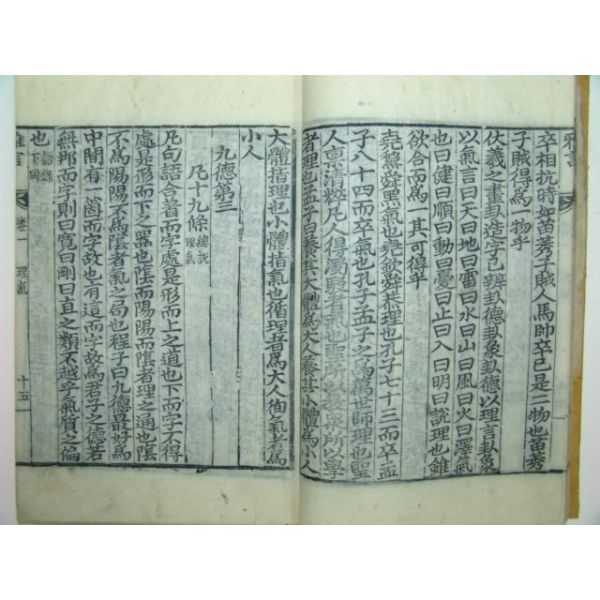 雅言
卒相抗時如苗莠子賊人馬帥卒已是二物也苗莠
子賊得爲一物乎
伏羲之畫卦造字已辨卦德卦象卦德以理言卦象
以氣言曰天曰地曰雷曰水曰山曰風曰火曰澤氣
也曰健曰順曰動曰憂曰止曰入曰明曰說理也雖
欲合而爲一其可得乎
堯癯舜黑氣也堯欽舜恭理也孔子七十三而卒孟
子八十四而卒氣也孔子孟子之爲萬世師理也聖
人稟淸粹凡人得濁駁者氣也聖所以爲聖所以學
者理也孟子曰養其大體爲大人養其小體爲小人
大體指理也小體指氣也循理者爲大人徇氣者爲
小人
九德第三
凡十九條 總說理氣
凡句語合着而字處是形而上之道也下而字不得
處是形而下之器也陰而陽陽而陰者理之通也陰
不爲陽陽不爲陰者氣之局也程子曰九德最好爲
中間有一箇而字故也有這而字故爲君子之德若
無那而字則曰寬曰剛曰直之類不越乎氣質之偏
也 語類下同
雅言 卷一 理氣 十五